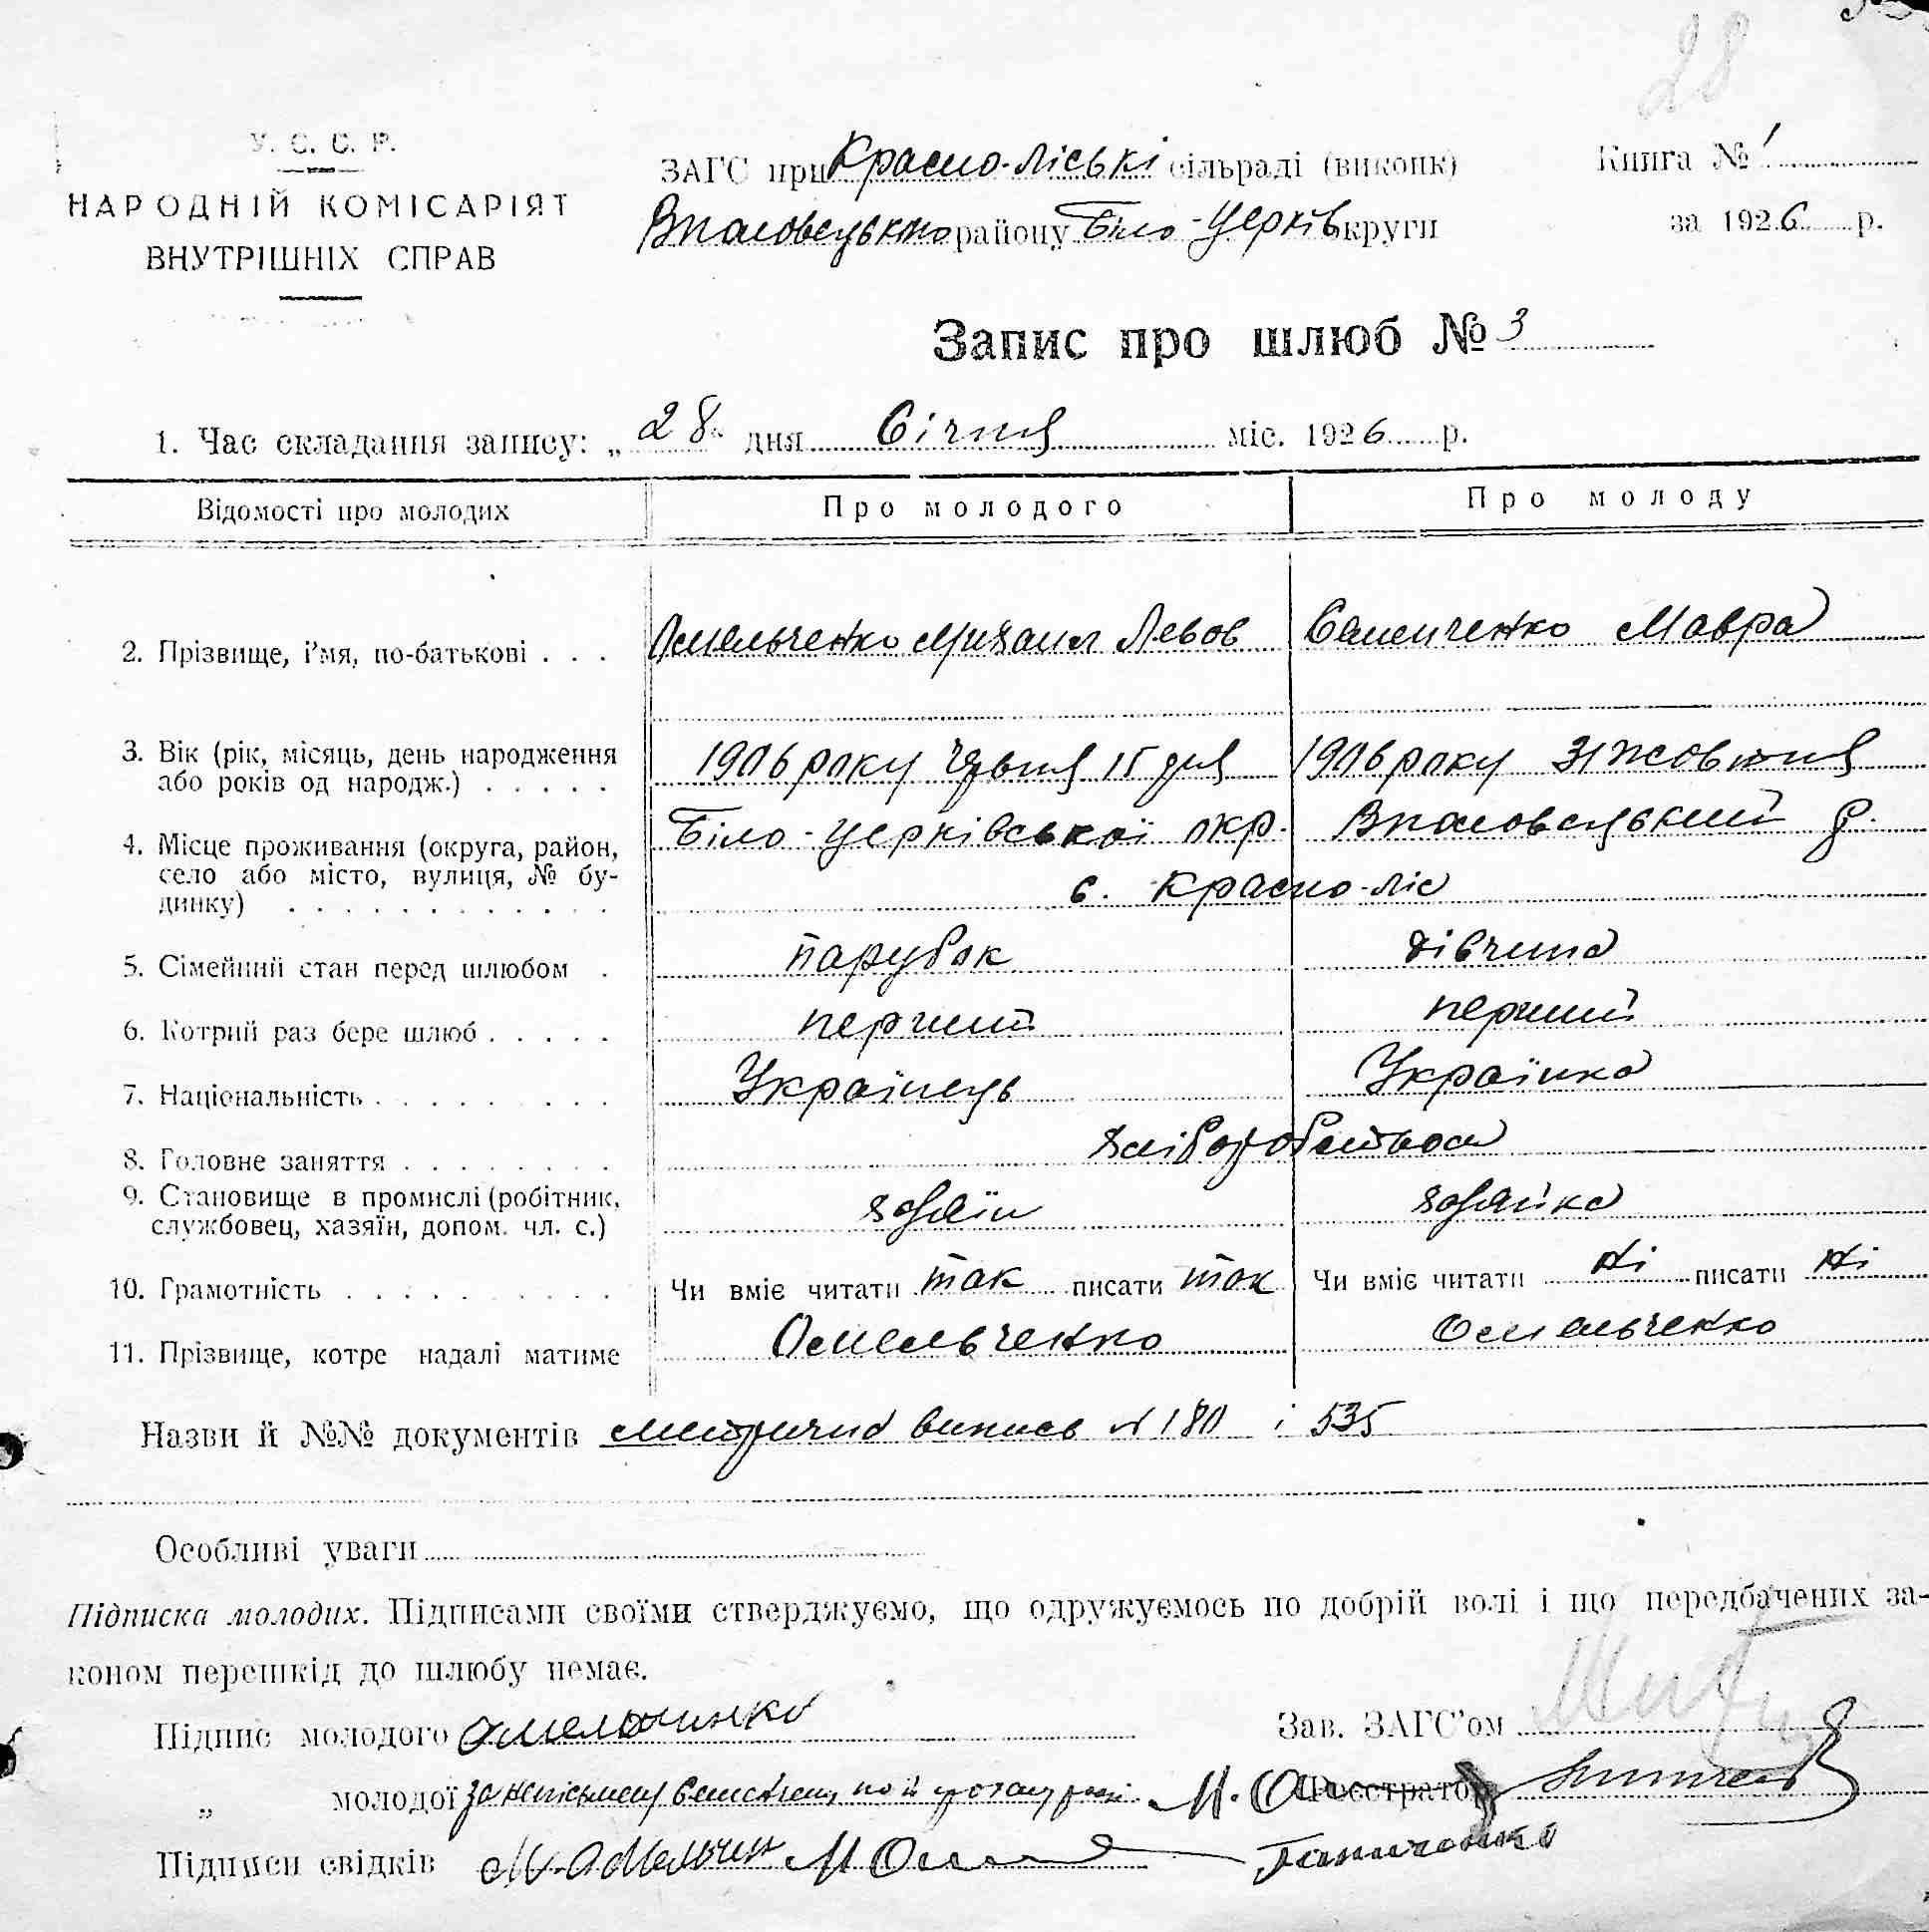 28
У. С. С. Р.
НАРОДНІЙ КОМІСАРІЯТ
ВНУТРІШНІХ СПРАВ
ЗАГС при Красно-ліські сільраді (виконк)
району Біло-Церків округи
Книга № 1
за 1926 р.
Запис про шлюб № 3
1. Час складання запису: „ 28 " дня Січня міс. 1926 р.
Відомості про молодих
Про молодого
Про молоду
2. Прізвище, і'мя, по-батькові . . . Омельченко Михаил Левов Семенченко Мавра
3. Вік (рік, місяць, день народження
або років од народж.) . . . . . 1906 року Червня 15 дня 1906 року 31 жовтня
4. Місце проживання (округа, район,
село або місто, вулиця, № бу-
динку) . . . . . . . . . . . .
Біло-Церківської окр. р.
с. Красно-ліс
5. Сімейний стан перед шлюбом . парубок дівчина
6. Котрий раз бере шлюб . . . . . перший перший
7. Національність . . . . . . . . . Українець Українка
8. Головне заняття . . . . . . . . хліборобство
9. Становище в промислі (робітник,
службовец, хазяїн, допом. чл. с.) хазяїн хазяйка
10. Грамотність . . . . . . . . . . Чи вміє читати так писати так Чи вміє читати ні писати ні
11. Прізвище, котре надалі матиме Омельченко Омельченко
Назви й №№ документів метрична випись № 180 і 535
Особливі уваги
Підписка молодих. Підписами своїми стверджуємо, що одружуємось по добрій волі і що передбачених за-
коном перешкід до шлюбу немає.
Підпис молодого Омельченко Зав. ЗАГС'ом
„ молодої за неписьмену Реєстратор
Підписи свідків